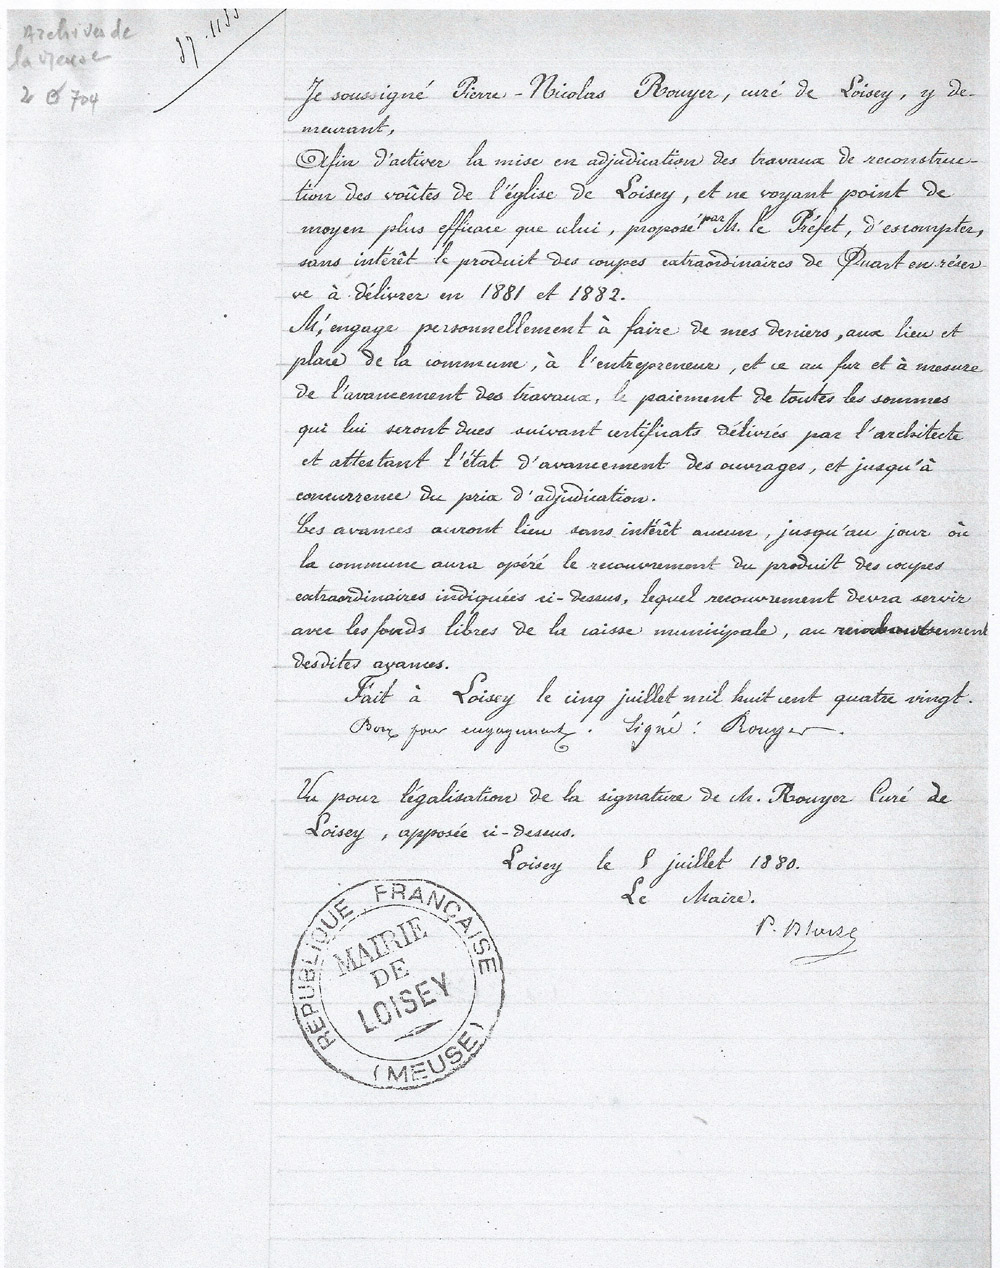 Archives de
la Meuse
704
Je soussigné Pierre-Nicolas Rouyer, curé de Loisey, y de-
meurant,
Afin d'activer la mise en adjudication des travaux de reconstruc-
tion des voûtes de l'église de Loisey, et ne voyant point de
moyen plus efficace que celui, proposé par M. le Préfet, d'escompter,
sans intérêt le produit des coupes extraordinaires de Quart en réser-
ve à délivrer en 1881 et 1882.
M'engage personnellement à faire de mes deniers, aux lieu et
place de la commune, à l'entrepreneur, et ce au fur et à mesure
de l'avancement des travaux, le paiement de toutes les sommes
qui lui seront dues suivant certificats délivrés par l'architecte
et attestant l'état d'avancement des ouvrages, et jusqu'à
concurrence du prix d'adjudication.
Ces avances auront lieu sans intérêt aucun, jusqu'au jour où
la commune aura opéré le recouvrement du produit des coupes
extraordinaires indiquées ci-dessus, lequel recouvrement devra servir
avec les fonds libres de la caisse municipale, au remboursement
desdites avances.
Fait à Loisey le cinq juillet mil huit cent quatre vingt.
Bon pour engagement. Signé: Rouyer.
Vu pour légalisation de la signature de M. Rouyer Curé de
Loisey, apposée ci-dessus.
Loisey le 5 juillet 1880.
Le Maire.
RÉPUBLIQUE FRANÇAISE
MAIRIE
DE
LOISEY
(MEUSE)